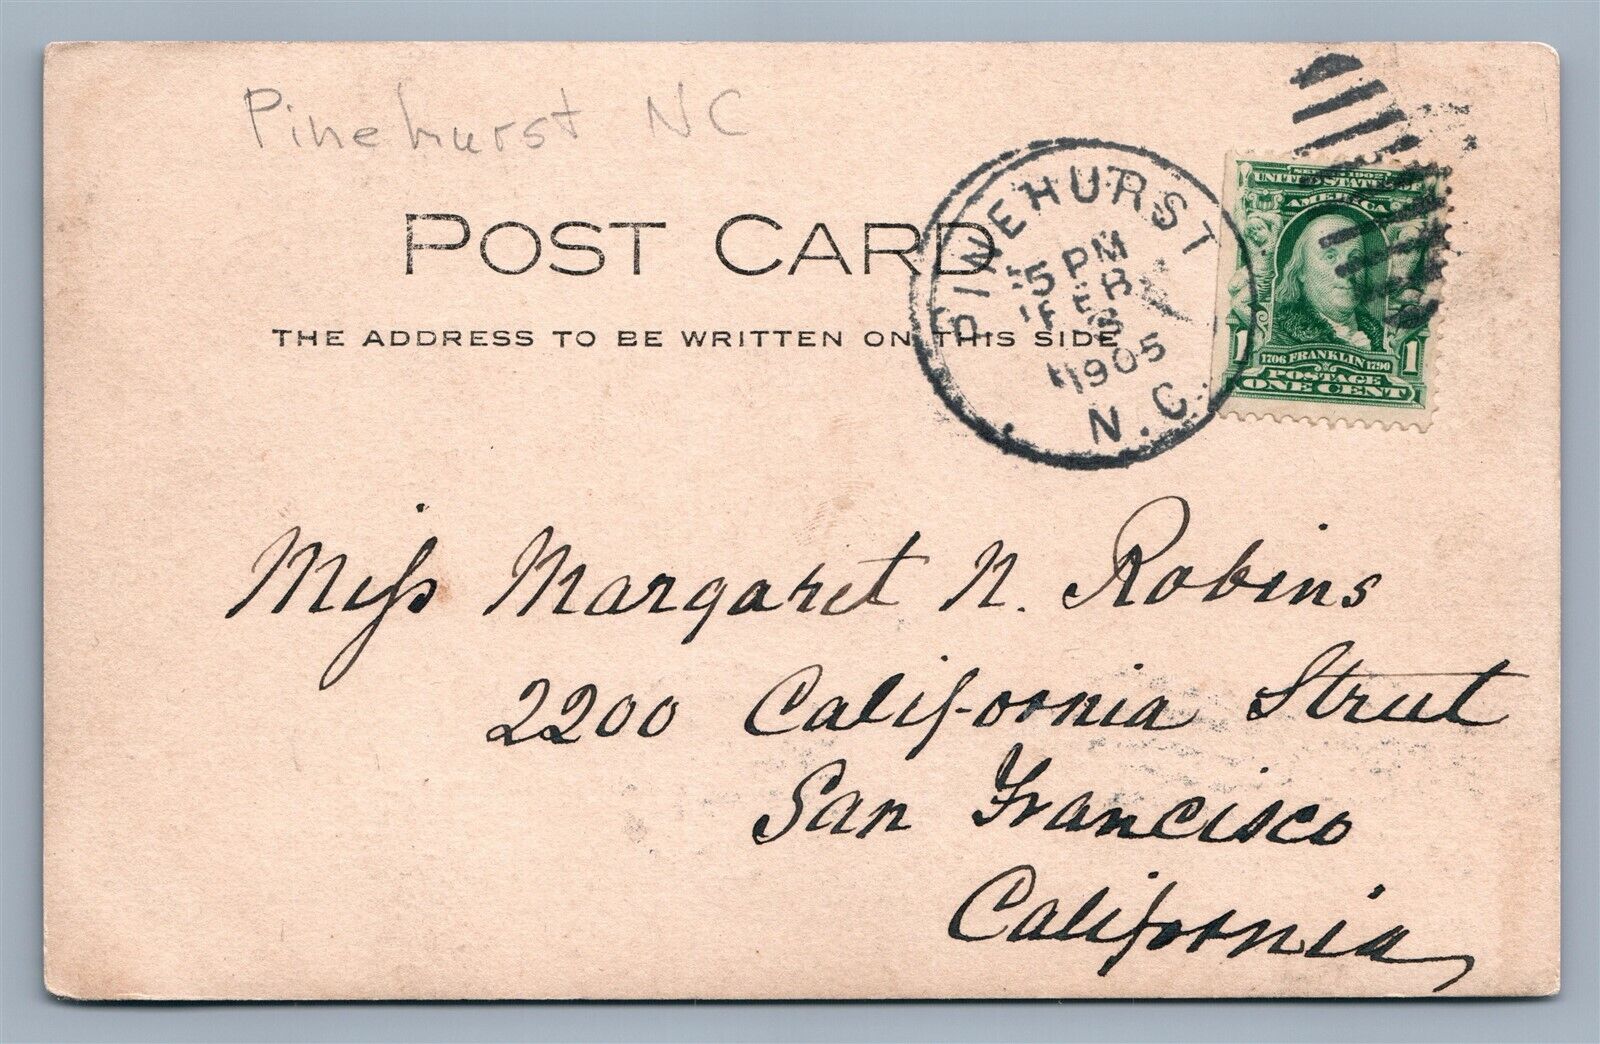 Pinehurst NC
POST CARD
THE ADDRESS TO BE WRITTEN ON THIS SIDE
PINEHURST
5 PM
FEB
1905
N.C.
SERIES 1902
UNITED STATES OF
AMERICA
1 1706 FRANKLIN 1790 1
POSTAGE
ONE CENT
Miss Margaret N. Robins
2200 California Street
San Francisco
California,